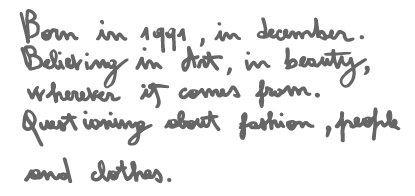 Born in 1991, in december.
Believing in Art, in beauty,
wherever it comes from.
Questioning about fashion, people
and clothes.